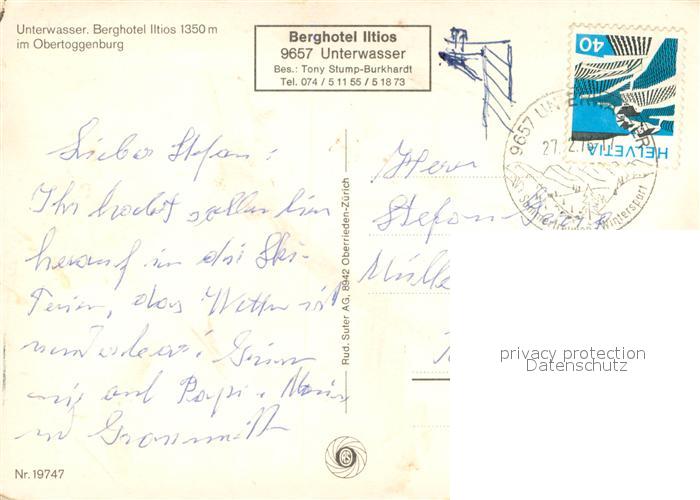 Unterwasser. Berghotel Iltios 1350 m
im Obertoggenburg
Berghotel Iltios
9657 Unterwasser
Bes.: Tony Stump-Burkhardt
Tel. 074 / 5 11 55 / 5 18 73
40
HELVETIA
9657 UNTERWASSER
27.2.76
Wintersport
Lieber Stefan:
Ihr hättet sollen hin
herauf in die Ski-
Ferien, das Wetter ist
wunderbar.
mir auf Papi
und Grossmutter
Herr
Stefan
Müller
Rud. Suter AG, 8942 Oberrieden-Zürich
privacy protection
Datenschutz
Nr. 19747